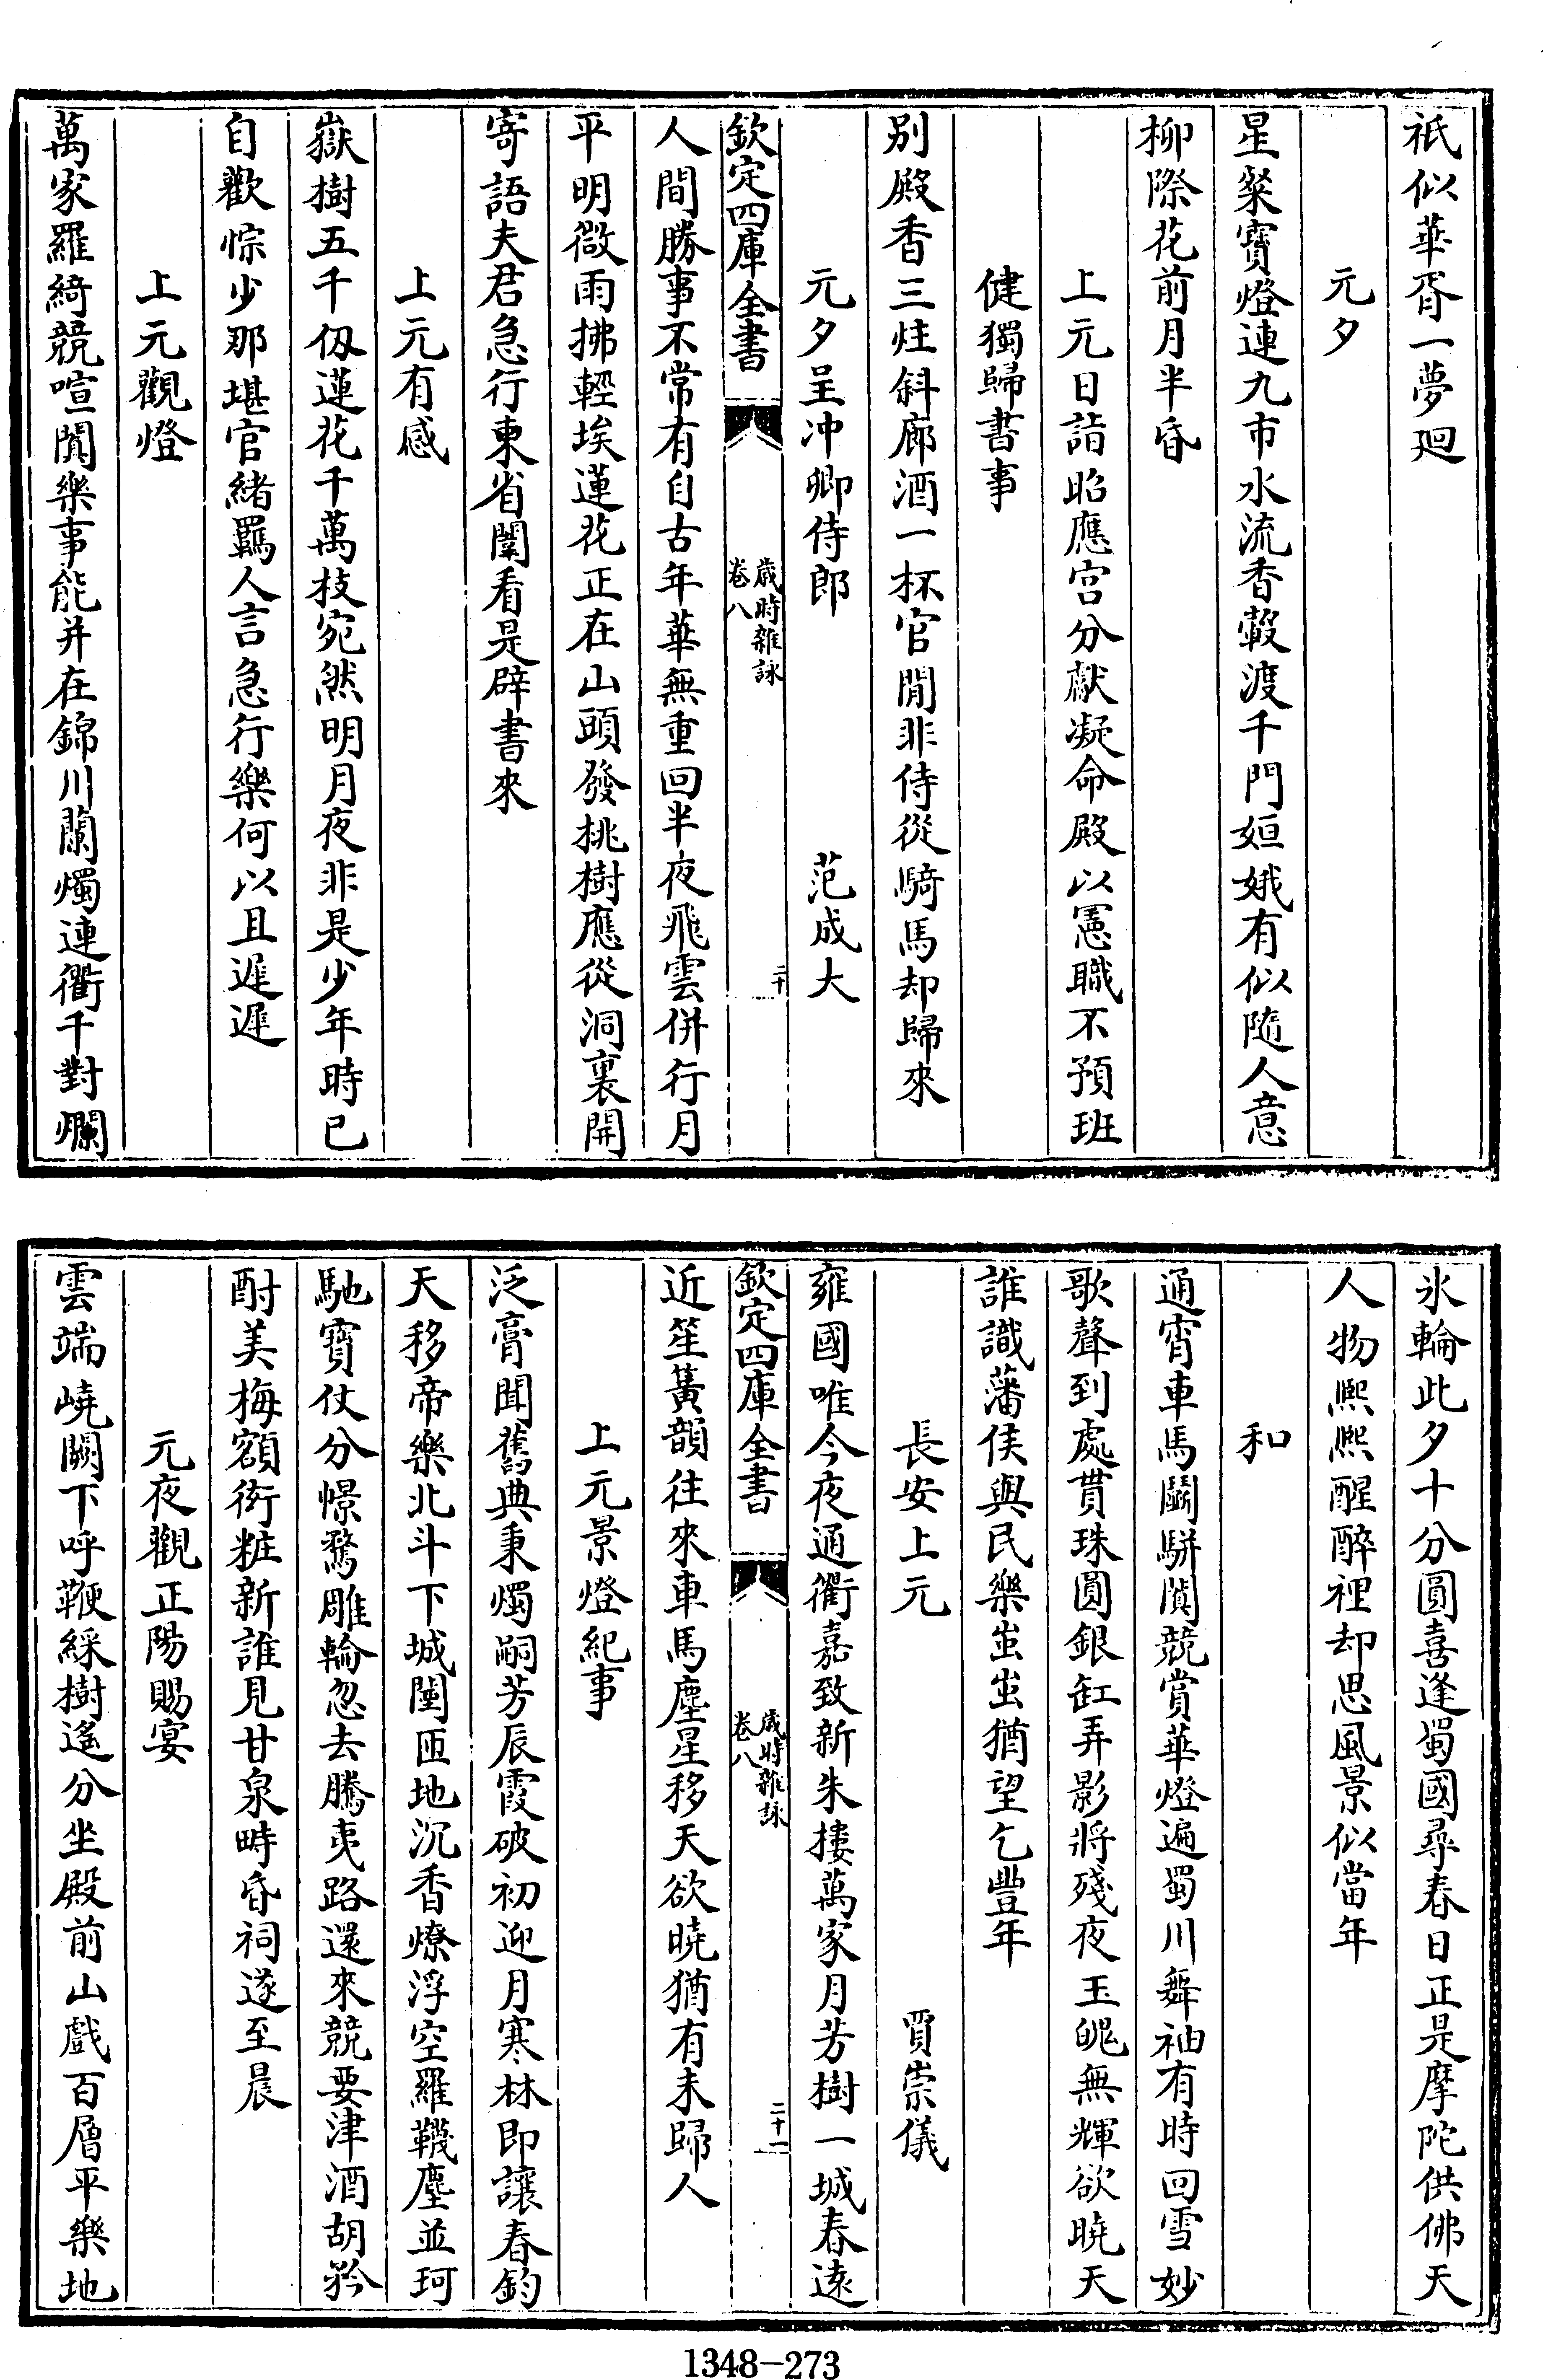 祇似華胥一夢廻
元夕
星粲寳燈連九市水流香轂渡千門姮娥有似隨人意
柳際花前月半昏
上元日詣昭應宫分獻凝命殿以憲職不預班
健獨歸書事
别殿香三炷斜廊酒一杯官閒非侍從騎馬却歸來
元夕呈冲卿侍郎 范成大
欽定四庫全書 歲時雜詠 卷八 二十
人間勝事不常有自古年華無重回半夜飛雲併行月
平明微雨拂輕埃蓮花正在山頭發桃樹應從洞裏開
寄語夫君急行東省闈看是辟書來
上元有感
嶽樹五千仭蓮花千萬枝宛然明月夜非是少年時已
自歡悰少那堪官緒羈人言急行樂何以且遲遲
上元觀燈
萬家羅綺競喧闐樂事能并在錦川蘭燭連衢千對爛
氷輪此夕十分圓喜逢蜀國尋春日正是摩陀供佛天
人物熈熈醒醉裡却思風景似當年
和
通宵車馬鬭駢闐競賞華燈遍蜀川舞袖有時回雪妙
歌聲到處貫珠圓銀缸弄影將殘夜玉魄無輝欲曉天
誰識藩侯與民樂蚩蚩猶望乞豐年
長安上元 賈崇儀
雍國唯今夜通衢嘉致新朱摟萬家月芳樹一城春遠
欽定四庫全書 歲時雜詠 卷八 二十一
近笙簧韻往來車馬塵星移天欲曉猶有未歸人
上元景燈紀事
泛膏聞舊典秉燭嗣芳辰霞破初迎月寒林即讓春鈞
天移帝樂北斗下城闉匝地沉香燎浮空羅韈塵並珂
馳寳仗分幜騖雕輪忽去騰夷路還來競要津酒胡矜
酎美梅額衒粧新誰見甘泉畤昏祠遂至晨
元夜觀正陽賜宴
雲端嶢闕下呼鞭綵樹遙分坐殿前山戲百層平樂地
1348-273